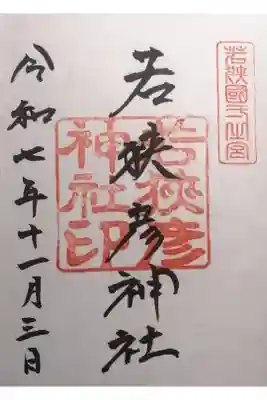 若狹國一之宮
若狹彦神社
若狹彦
神社印
令和七年十一月三日